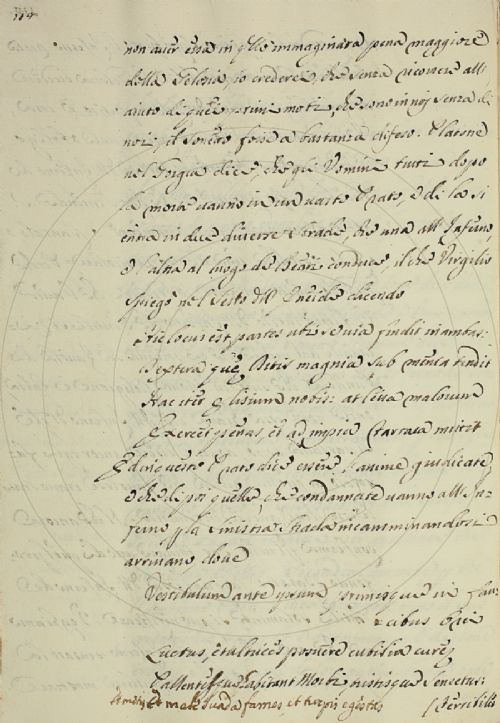 114
non auer essa in qllo immaginara pena maggiore
della Gelosia, io crederei, che senza ricorrere all
aiuto di questi primi moti, che sono in noj senza di
noi, il sonetto fosse a bastanza difeso. Platone
nel Gorgia dice, che gli Vomini tutti dopo
la morte uanno in un uasto Prato, e di la si
entra in due diuerse strade, che una all Inferno,
e l'altra al luogo de Beati conduce, il che Virgilio
spiegò nel sesto dell Eneide dicendo
Hic locus est partes ubi se uia findit in ambas:
Dextera quę Ditis magni sub męnia tendit
Hac iter Elisium nobis: at leua malorum
Exercet pęnas, et ad impia Tartara mittit
Ed in questo Prato dice essere l'anime giudicate
e che di poi quelle, che condannate uanno all In=
ferno p la sinistra strada incamminandosi
arriuano, doue
Vestibulum ante ipsum primisque in fau=
cibus Orci
Luctus, et ultrices posuere cubilia curę,
Pallentesque habitant Morbi tristisque Senectus:
Et metus et male suada fames, et turpis egestas
Terribiles